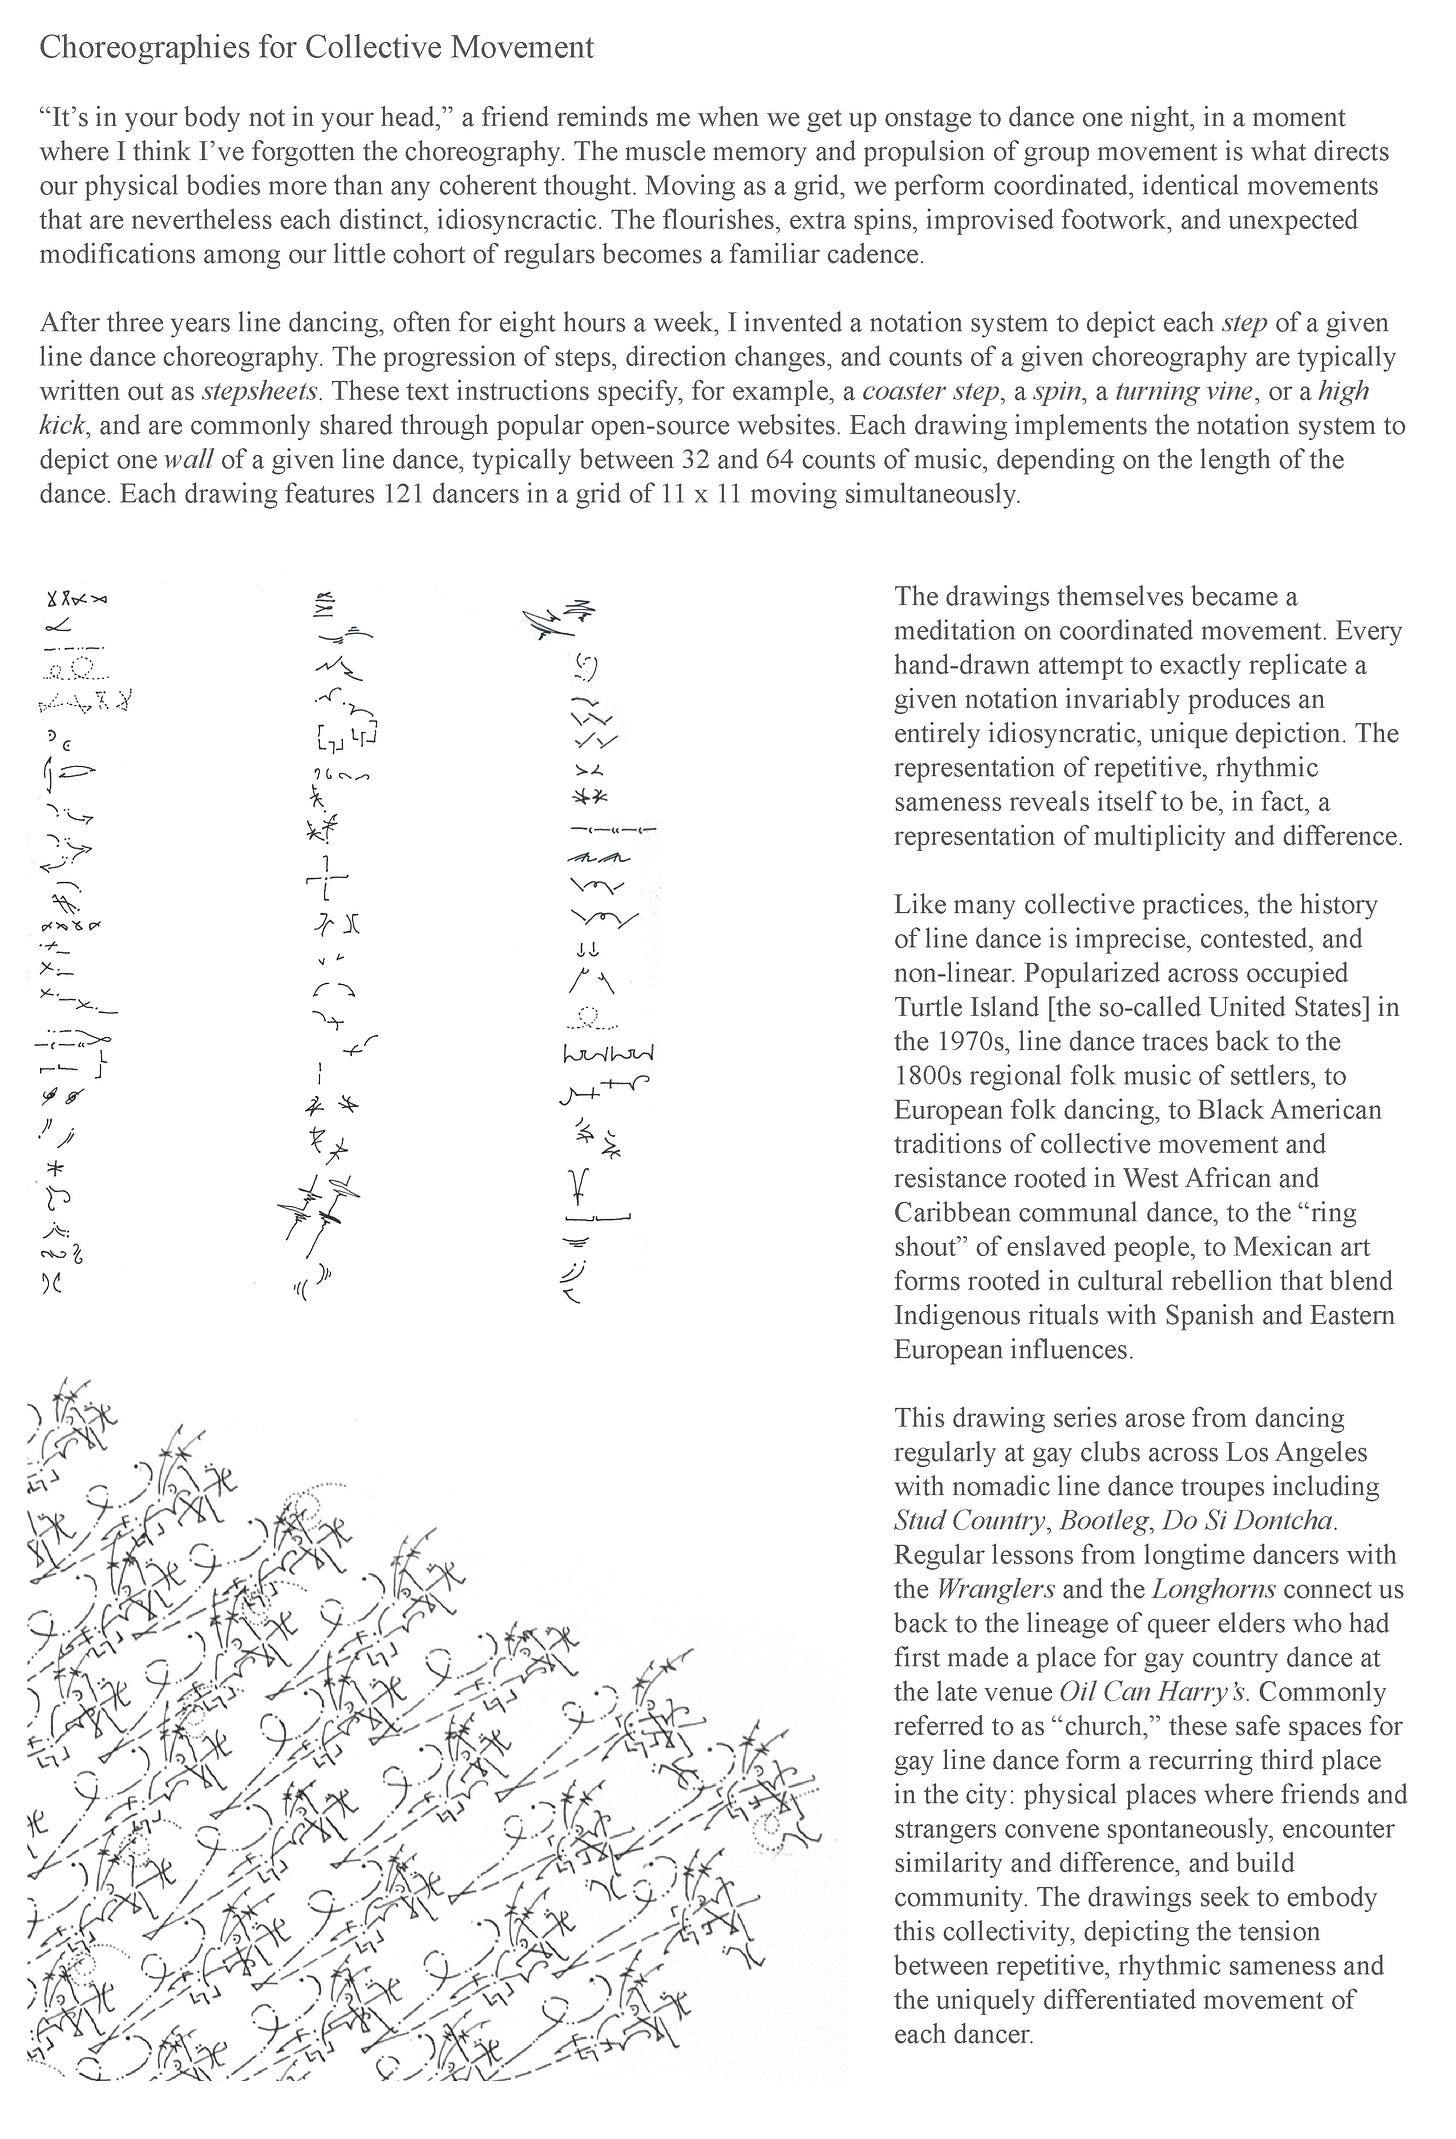 Choreographies for Collective Movement
“It’s in your body not in your head,” a friend reminds me when we get up onstage to dance one night, in a moment
where I think I’ve forgotten the choreography. The muscle memory and propulsion of group movement is what directs
our physical bodies more than any coherent thought. Moving as a grid, we perform coordinated, identical movements
that are nevertheless each distinct, idiosyncractic. The flourishes, extra spins, improvised footwork, and unexpected
modifications among our little cohort of regulars becomes a familiar cadence.
After three years line dancing, often for eight hours a week, I invented a notation system to depict each step of a given
line dance choreography. The progression of steps, direction changes, and counts of a given choreography are typically
written out as stepsheets. These text instructions specify, for example, a coaster step, a spin, a turning vine, or a high
kick, and are commonly shared through popular open-source websites. Each drawing implements the notation system to
depict one wall of a given line dance, typically between 32 and 64 counts of music, depending on the length of the
dance. Each drawing features 121 dancers in a grid of 11 x 11 moving simultaneously.
The drawings themselves became a
meditation on coordinated movement. Every
hand-drawn attempt to exactly replicate a
given notation invariably produces an
entirely idiosyncratic, unique depiction. The
representation of repetitive, rhythmic
sameness reveals itself to be, in fact, a
representation of multiplicity and difference.
Like many collective practices, the history
of line dance is imprecise, contested, and
non-linear. Popularized across occupied
Turtle Island [the so-called United States] in
the 1970s, line dance traces back to the
1800s regional folk music of settlers, to
European folk dancing, to Black American
traditions of collective movement and
resistance rooted in West African and
Caribbean communal dance, to the “ring
shout” of enslaved people, to Mexican art
forms rooted in cultural rebellion that blend
Indigenous rituals with Spanish and Eastern
European influences.
This drawing series arose from dancing
regularly at gay clubs across Los Angeles
with nomadic line dance troupes including
Stud Country, Bootleg, Do Si Dontcha.
Regular lessons from longtime dancers with
the Wranglers and the Longhorns connect us
back to the lineage of queer elders who had
first made a place for gay country dance at
the late venue Oil Can Harry’s. Commonly
referred to as “church,” these safe spaces for
gay line dance form a recurring third place
in the city: physical places where friends and
strangers convene spontaneously, encounter
similarity and difference, and build
community. The drawings seek to embody
this collectivity, depicting the tension
between repetitive, rhythmic sameness and
the uniquely differentiated movement of
each dancer.